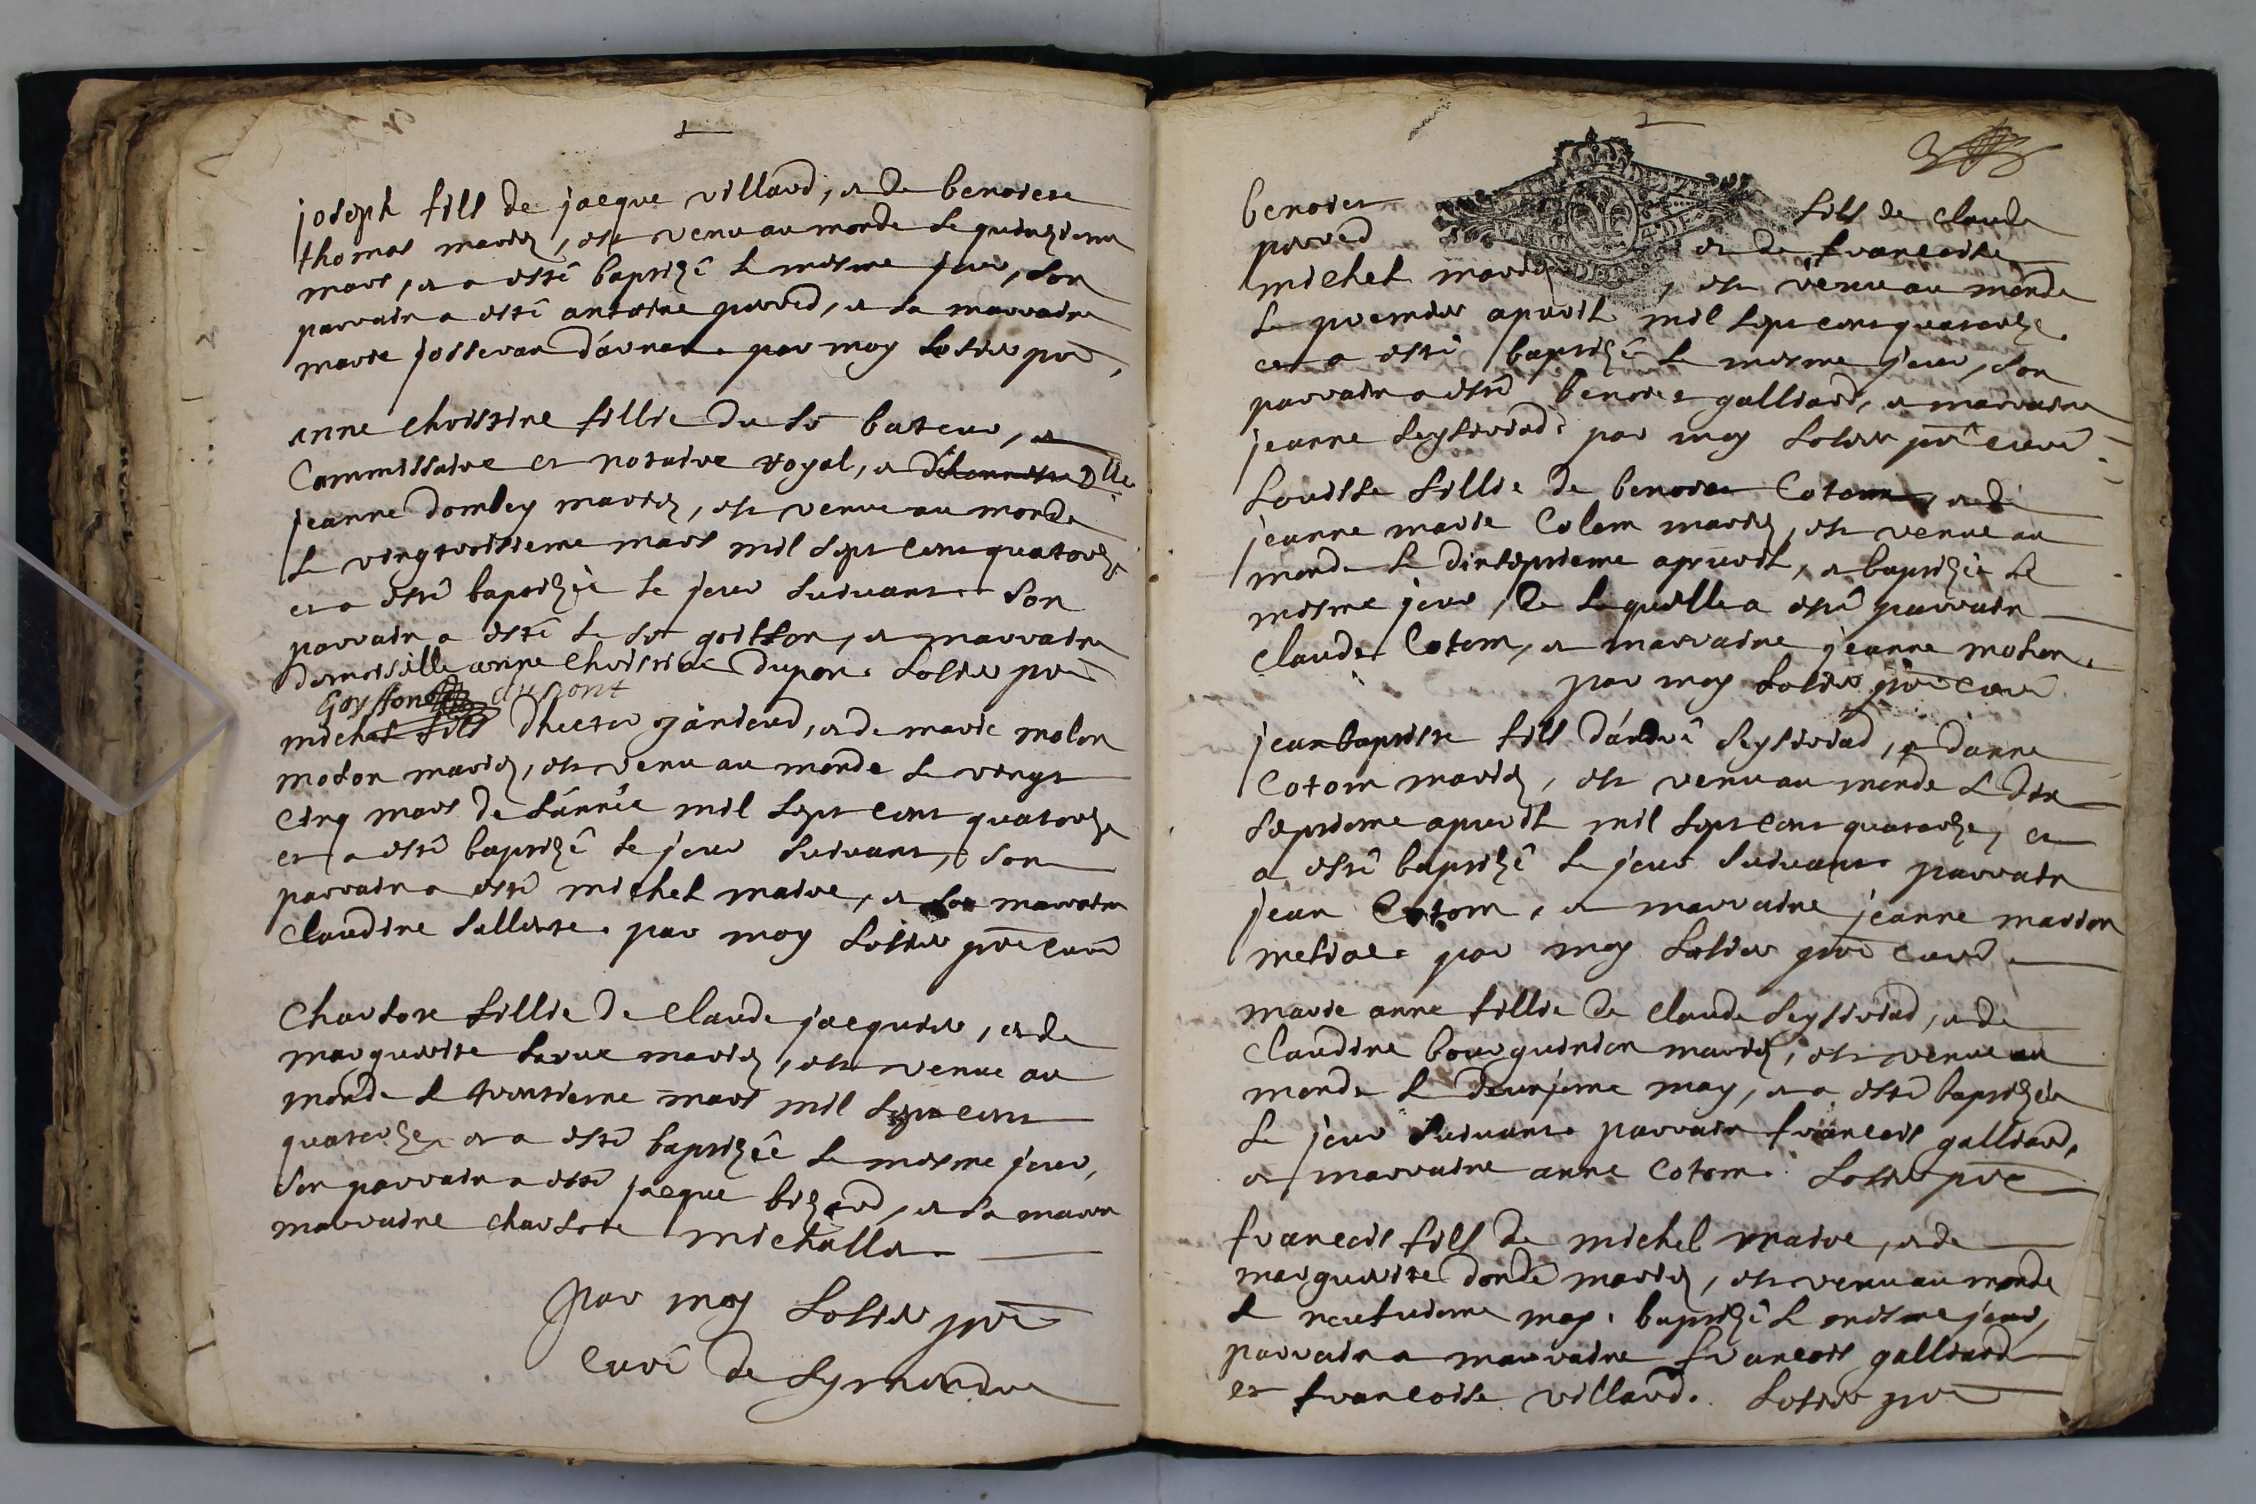 joseph fils de jacque villard, et de benoiste
thomas mariés, est venu au monde le quinziéme
mars, et a esté baptizé le mesme jour, son
parrain a esté antoine
marie josseran par moy Solier pre
anne christine fillie du Sr bateur, et
Commissaire et notaire royal, et Dlle
jeanne dombey mariés, est venue au monde
le vingtroisieme mars mil sept cent quatorze
et a esté baptizée le jour suivant. son
parrain a esté le Sr goiffon, et marraine
Demoiselle anne christine dupont. Solier pre
Goyffon dupont
michel fils dhector et de marie molon
molon mariés, est venu au monde le vingt
cinq mars de l'année mil sept cent quatorze
et a esté baptizé le jour suivant, son
parrain a esté michel maire, et sa marraine
Claudine par moy Solier pre curé
Charlote fillie de Claude jacquier, et de
marguerite mariés, est venue au
monde le trentieme mars mil sept cent
quatorze et a esté baptizée le mesme jour,
son parrain a esté jacque bizard, et sa marr
marraine charlote
par moy Solier pre
Curé de Symandre
benoist fils de claude
et de francoise
michel mariés, est venu au monde
le premier apvril mil sept cent quatorze
et a esté baptizé le mesme jour, son
parrain a esté benoist galliard, et marraine
jeanne par moy Solier pre curé
Louisse fillie de benoist Cotom, et de
jeanne marie Colom mariés, est venue au
monde le dixseptieme apvril, et baptizée le
mesme jour, de laquelle a esté parrain
claude Cotom, et marraine jeanne molon.
par moy Solier pre curé
jean baptiste fils d'andré et danne
Cotom mariés, est venu au monde le dix
septieme apvril mil sept cent quatorze, et
a esté baptizé le jour suivant. parrain
jean Cotom, et marraine jeanne marion
par moy Solier pre curé
marie anne fillie de claude et de
claudine bourguinion mariés, est venue au
monde le deuxjeme may, et a esté baptizée
le jour suivant. parrain francois galliard,
et marraine anne Cotom. Solier pre
francois fils de michel maire, et de
marguerite dondé mariés, est venu au monde
le neufvieme may, baptizé le mesme jour,
parrain et marraine francois galliard
et francoise villard. Solier pre